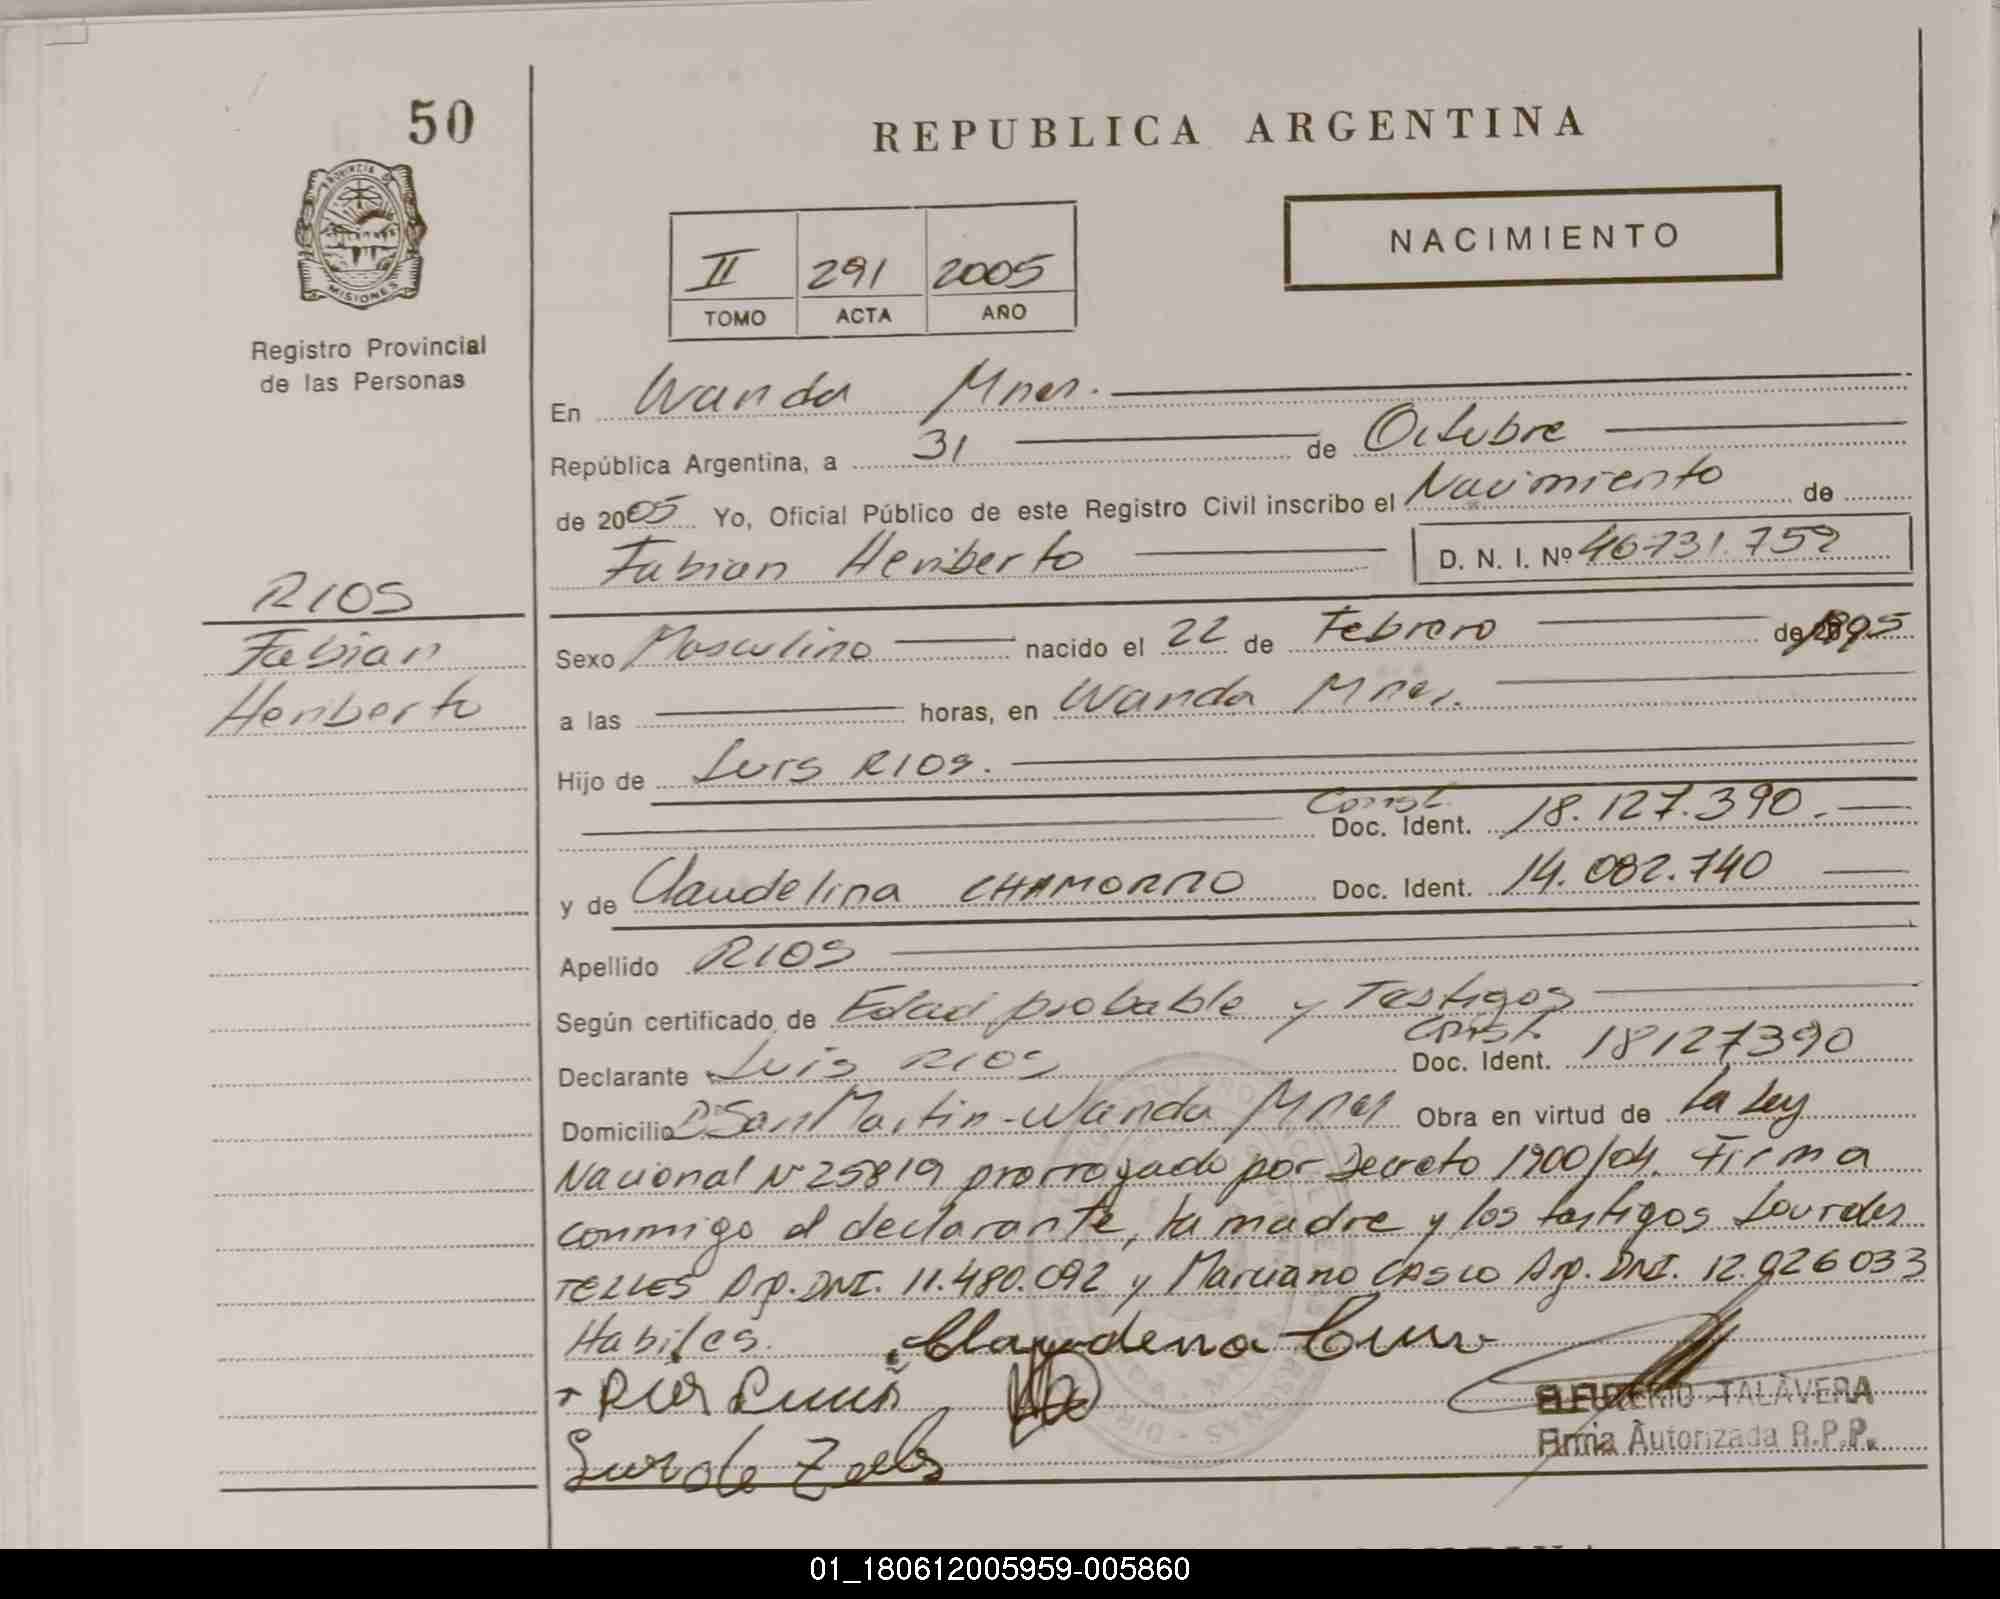 50
REPUBLICA ARGENTINA
PROVINCIA DE
MISIONES
Registro Provincial
de las Personas
NACIMIENTO
II 291 2005
TOMO ACTA AÑO
En Wanda Mnes.
República Argentina, a 31 de Octubre
de 2005 Yo, Oficial Público de este Registro Civil inscribo el Nacimiento de
Fabian Heriberto D. N. I. Nº 46.731.759
RIOS
Fabian
Heriberto
Sexo Masculino nacido el 22 de Febrero de 1995
a las horas, en Wanda Mnes.
Hijo de Luis RIOS.
Const.
Doc. Ident. 18.127.390.
y de Claudelina CHAMORRO Doc. Ident. 14.082.740
Apellido RIOS
Según certificado de Edad probable y Testigos
Const.
Declarante Luis RIOS Doc. Ident. 18127390
Domicilio Bº San Martin - Wanda Mnes Obra en virtud de La Ley
Nacional Nº 25819 prorrogado por Decreto 1900/04. Firma
conmigo el declarante, la madre y los testigos Lourdes
TELLES Arg. DNI. 11.480.092 y Marciano CASCO Arg. DNI. 12.926033
Habiles.
ELEUTERIO TALAVERA
Firma Autorizada R.P.P.
01_180612005959-005860